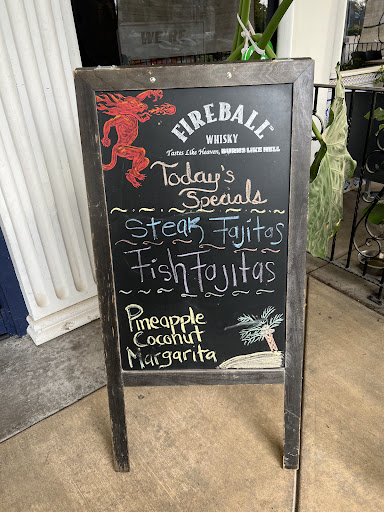 FIREBALL
WHISKY
Tastes Like Heaven, BURNS LIKE HELL
Today's
Specials
Steak Fajitas
Fish Fajitas
Pineapple
Coconut
Margarita